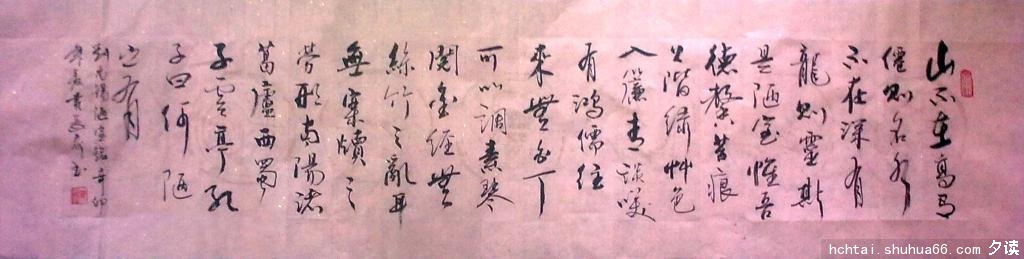 山不在高有
僊则名水
不在深有
龍则靈斯
是陋室惟吾
德馨苔痕
上階绿艸色
入簾青談咲
有鸿儒往
來無白丁
可以調素琴
閱金經無
絲竹之亂耳
無案牍之
劳形南陽诸
葛廬西蜀
子雲亭孔
子曰何陋
之有
劉禹锡陋室铭辛卯
书
hchtai.shuhua66.com 夕读